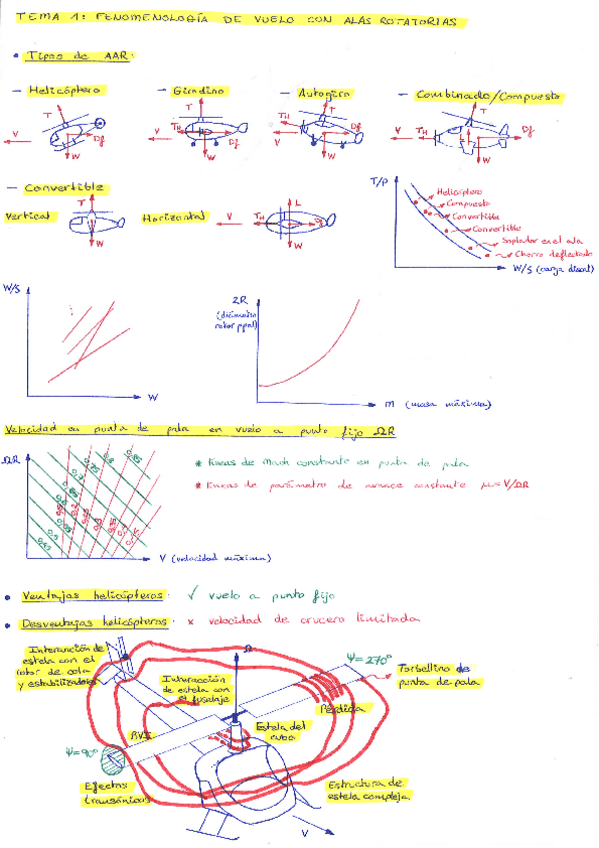 TEMA 1: FENOMENOLOGÍA DE VUELO CON ALAS ROTATORIAS
• Tipos de AAR:
– Helicóptero – Girodino – Autogiro – Combinado/Compuesto
T V Df W
T TH V Df W
T TH V Df W
T V TH W
– Convertible
Vertical T W
Horizontal V TH L W
T/P
Helicóptero
Compuesto
Convertible
Convertible
Soplador en el ala
Chorro deflectado
W/S (carga discal)
W/S
W
2R
(diámetro
rotor ppal)
m (masa máxima)
Velocidad en punta de pala en vuelo a punto fijo ΩR
ΩR
* líneas de Mach constante en punta de pala
* líneas de parámetro de avance constante μ=V/ΩR
V (velocidad máxima)
• Ventajas helicópteros: ✓ vuelo a punto fijo
• Desventajas helicópteros: x velocidad de crucero limitada
Interacción de
estela con el
rotor de cola
y estabilizadores
Interacción
de estela con
el fuselaje
Ω
Ψ=270°
Torbellino de
punta de pala
Pérdida
Estela del
cubo
B.V.I.
Ψ=90°
Efectos
transónicos
Estructura de
estela compleja
V